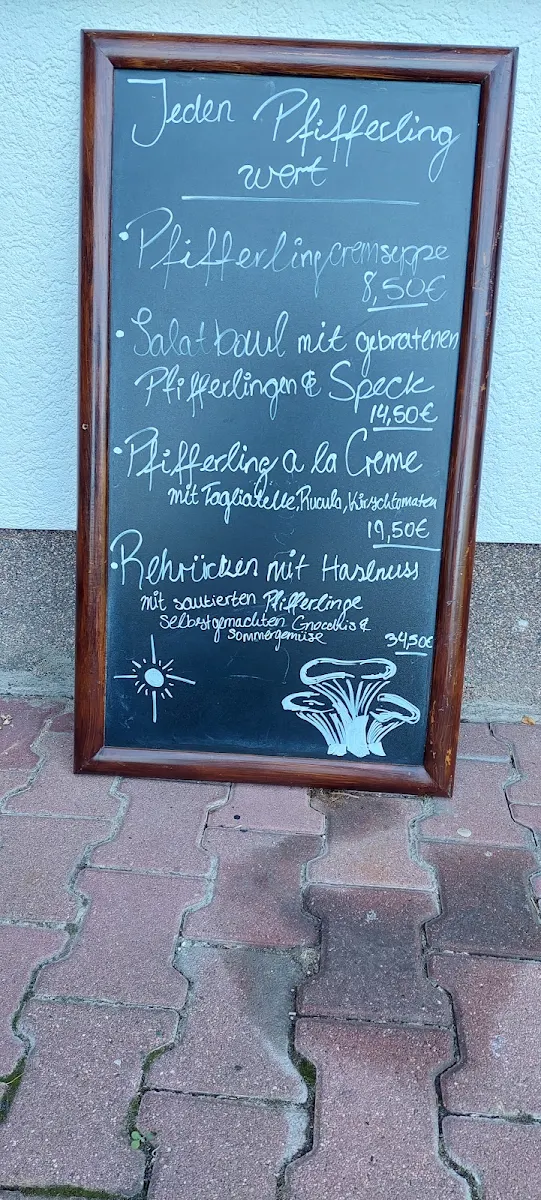 Jeden Pfifferling
wert
• Pfifferlingcremsuppe
8,50€
• Salatbowl mit gebratenen
Pfifferlingen & Speck
14,50€
• Pfifferling a la Creme
mit Tagliatelle, Rucula, Kirschtomaten
19,50€
• Rehrücken mit Haselnuss
mit sautierten Pfifferlinge
selbstgemachten Gnocchis &
Sommergemüse
34,50€